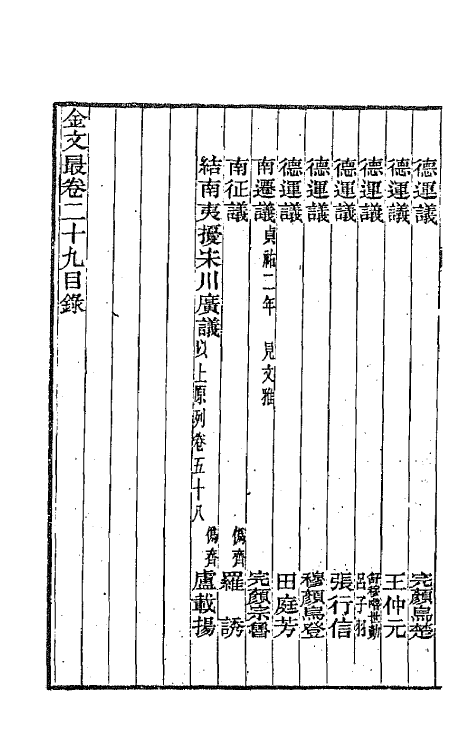 德運議 完顏烏楚
德運議 王仲元
德運議 舒穆嚕世勣 呂子羽
德運議 張行信
德運議 穆顏烏登
德運議 田庭芳
南遷議 貞祐二年 見文雅 完顏宗魯
南征議 偽齊 羅誘
結南夷擾宋川廣議 以上原列卷五十八 偽齊 盧載揚
金文最卷二十九目錄